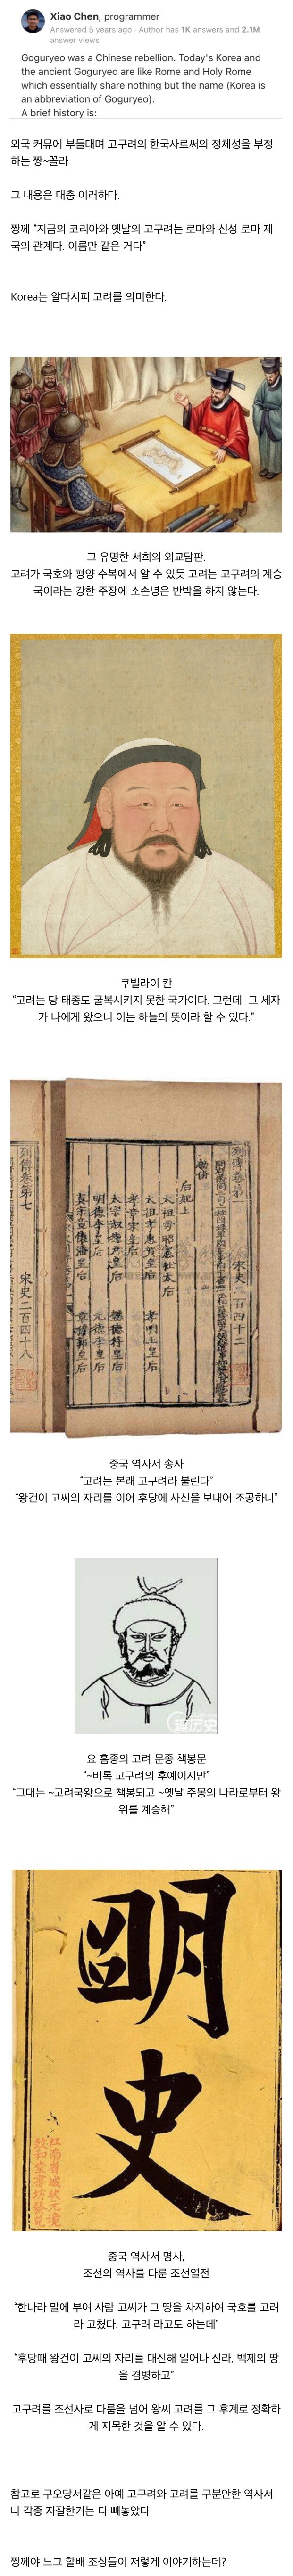 Xiao Chen, programmer
Answered 5 years ago · Author has 1K answers and 2.1M
answer views
Goguryeo was a Chinese rebellion. Today's Korea and
the ancient Goguryeo are like Rome and Holy Rome
which essentially share nothing but the name (Korea is
an abbreviation of Goguryeo).
A brief history is:
외국 커뮤에 부들대며 고구려의 한국사로써의 정체성을 부정
하는 짱~꼴라
그 내용은 대충 이러하다.
짱께 “지금의 코리아와 옛날의 고구려는 로마와 신성 로마 제
국의 관계다. 이름만 같은 거다”
Korea는 알다시피 고려를 의미한다.
그 유명한 서희의 외교담판.
고려가 국호와 평양 수복에서 알 수 있듯 고려는 고구려의 계승
국이라는 강한 주장에 소손녕은 반박을 하지 않는다.
쿠빌라이 칸
“고려는 당 태종도 굴복시키지 못한 국가이다. 그런데 그 세자
가 나에게 왔으니 이는 하늘의 뜻이라 할 수 있다.”
列傳卷第七
宋史二百四十八
后妃上
列傳卷第一
宋史二百四十二
중국 역사서 송사
“고려는 본래 고구려라 불린다”
“왕건이 고씨의 자리를 이어 후당에 사신을 보내어 조공하니”
요 흥종의 고려 문종 책봉문
“~비록 고구려의 후예이지만”
“그대는 ~고려국왕으로 책봉되고 ~옛날 주몽의 나라로부터 왕
위를 계승해”
明史
중국 역사서 명사,
조선의 역사를 다룬 조선열전
“한나라 말에 부여 사람 고씨가 그 땅을 차지하여 국호를 고려
라 고쳤다. 고구려 라고도 하는데”
“후당때 왕건이 고씨의 자리를 대신해 일어나 신라, 백제의 땅
을 겸병하고”
고구려를 조선사로 다룸을 넘어 왕씨 고려를 그 후계로 정확하
게 지목한 것을 알 수 있다.
참고로 구오당서같은 아예 고구려와 고려를 구분안한 역사서
나 각종 자잘한거는 다 빼놓았다
짱께야 느그 할배 조상들이 저렇게 이야기하는데?